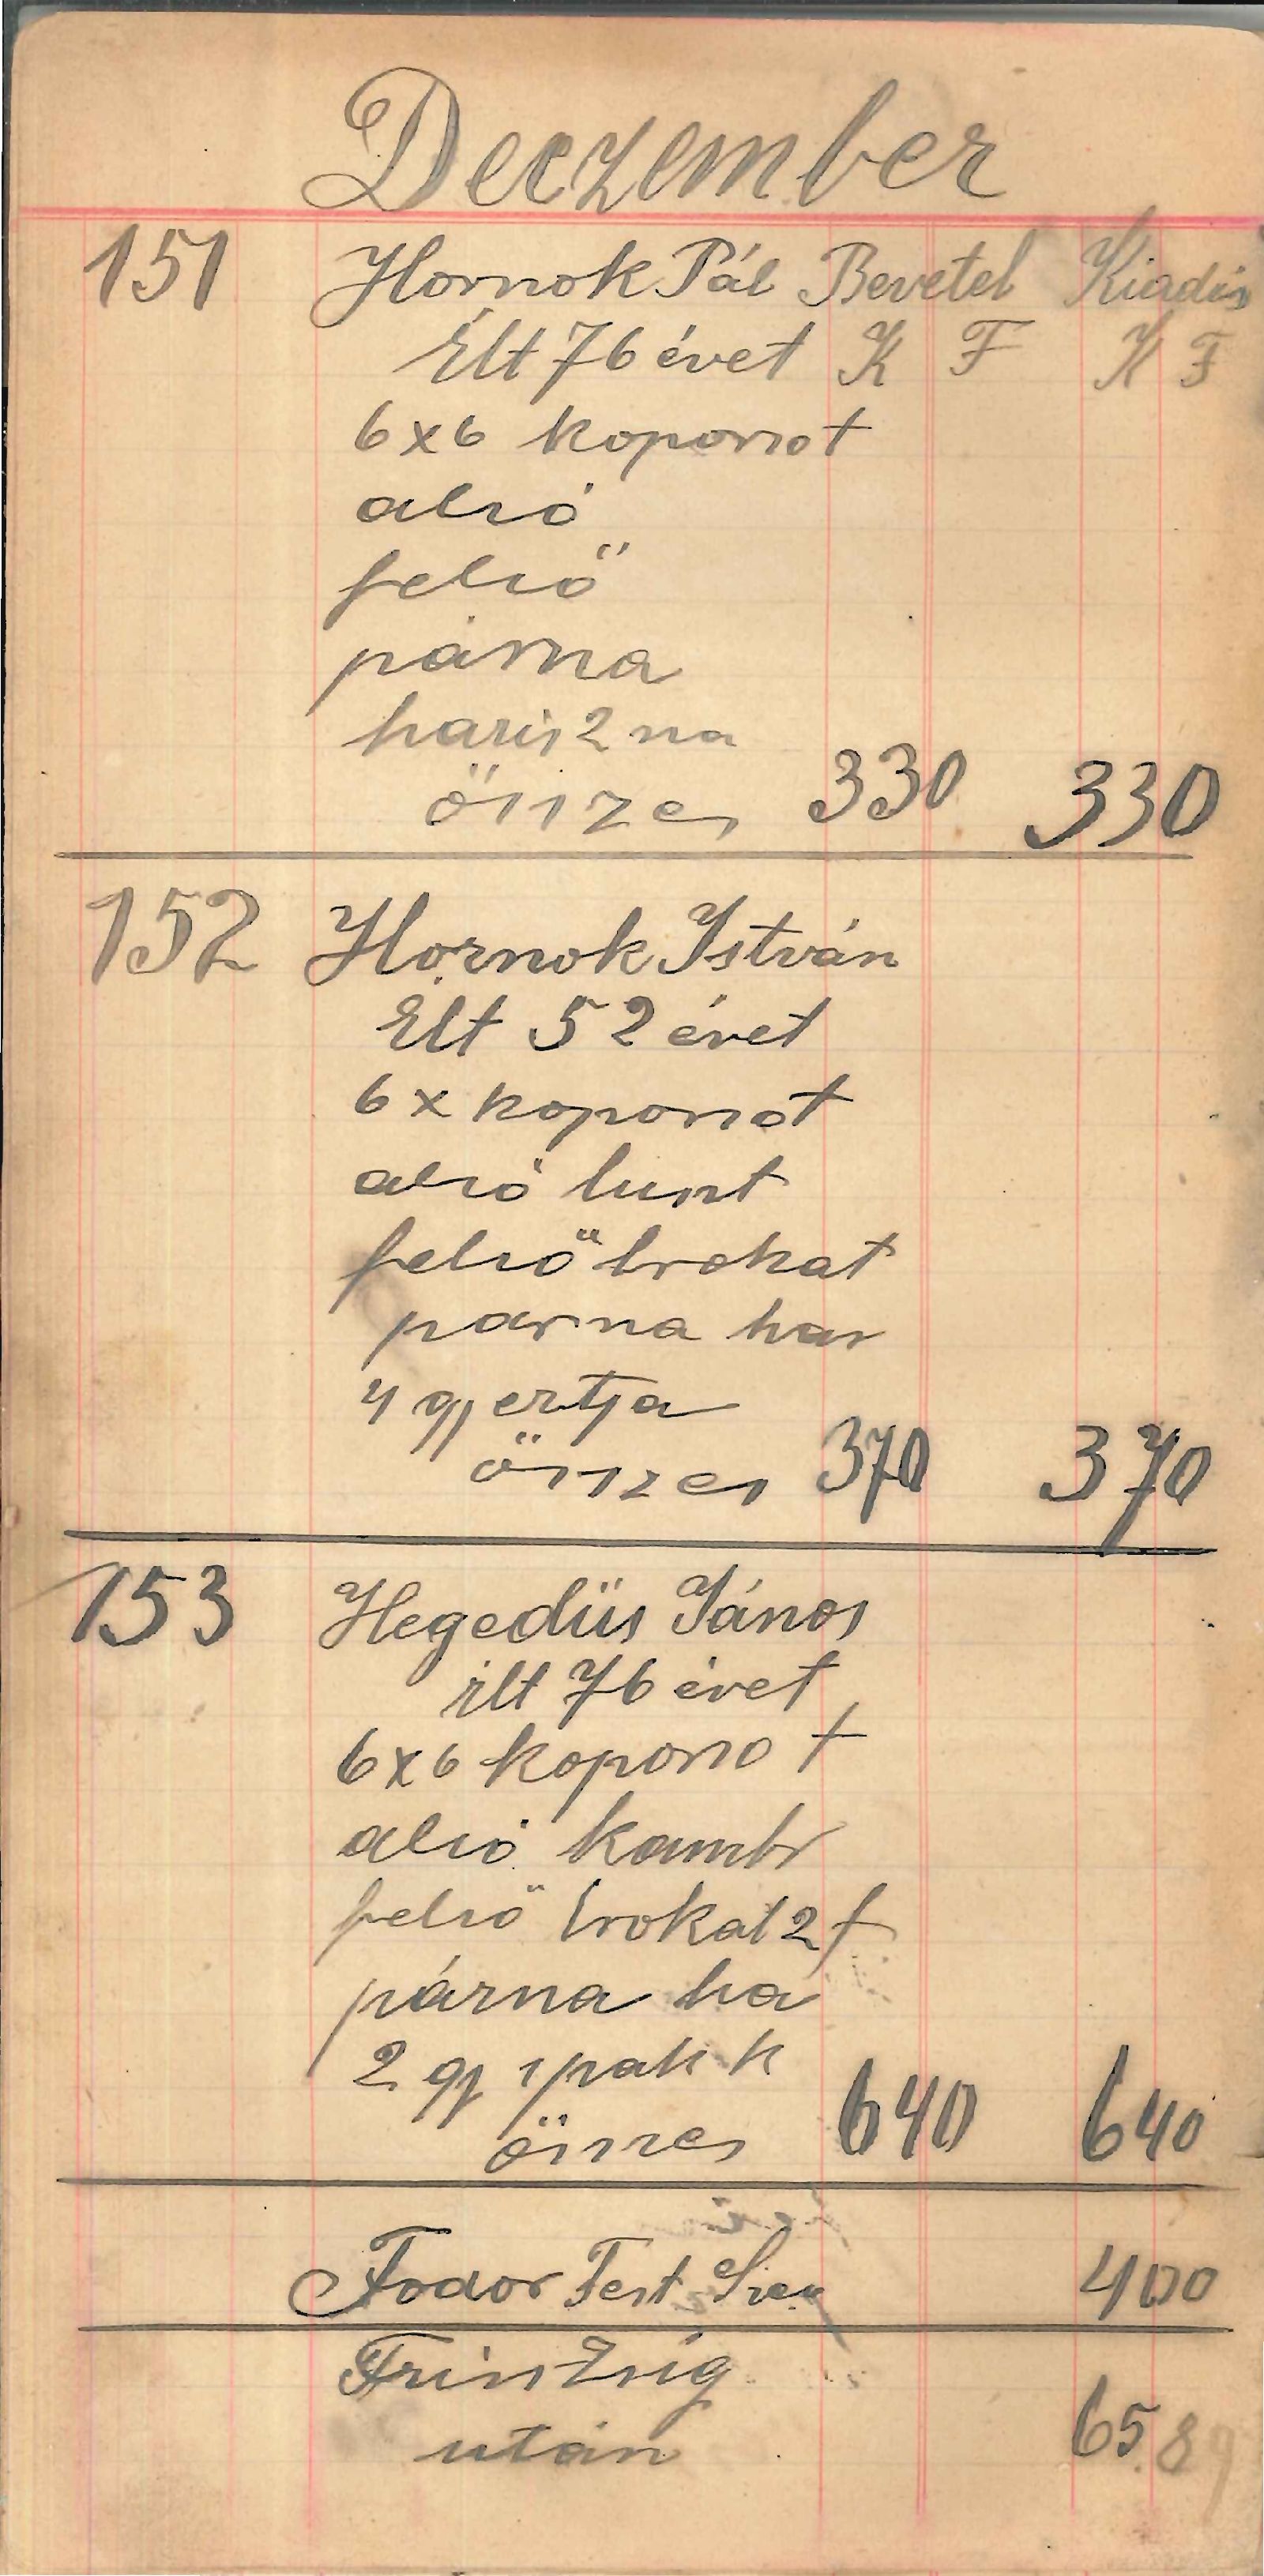 Deczember
151 Hornok Pál Bevetel Kiadás
Élt 76 évet K F K F
6x6 koporsot
alsó
felső
párna
haris2na
összes 330 330
152 Hornok István
Élt 52 évet
6x koporsot
alsó lust
felső brokat
parna har
4 gyertja
összes 370 370
153 Hegedüs János
élt 76 évet
6x6 koporsot
alsó kambr
felső brokat 2 f
párna ha
2 gy spakk
összes 640 640
Fodor Test 400
után 65.89